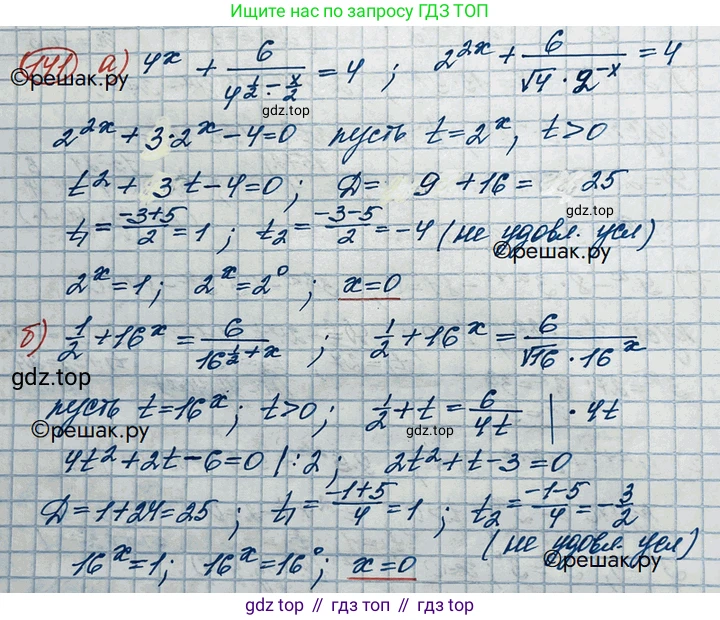 Ищите нас по запросу ГДЗ ТОП
141 а) 4^x + 6/(4^(1/2 − x/2)) = 4 ; 2^(2x) + 6/(√4 · 2^(−x)) = 4
©решак.ру
2^(2x) + 3·2^x − 4 = 0 пусть t = 2^x, t > 0
©решак.ру
t² + 3t − 4 = 0 ; D = 9 + 16 = 25
gdz.top
t₁ = (−3+5)/2 = 1 ; t₂ = (−3−5)/2 = −4 (не удовл. усл)
©решак.ру
2^x = 1 ; 2^x = 2^0 ; x = 0
б) 1/2 + 16^x = 6/(16^(1/2 + x)) ; 1/2 + 16^x = 6/(√16 · 16^x)
gdz.top
©решак.ру
пусть t = 16^x ; t > 0 ; 1/2 + t = 6/(4t) | · 4t
©решак.ру
gdz.top
4t² + 2t − 6 = 0 |:2 ; 2t² + t − 3 = 0
D = 1 + 24 = 25 ; t₁ = (−1+5)/4 = 1 ; t₂ = (−1−5)/4 = −3/2
(не удовл. усл)
16^x = 1 ; 16^x = 16^0 ; x = 0
©решак.ру
©решак.ру
gdz.top // гдз.топ // gdz.top // гдз.топ